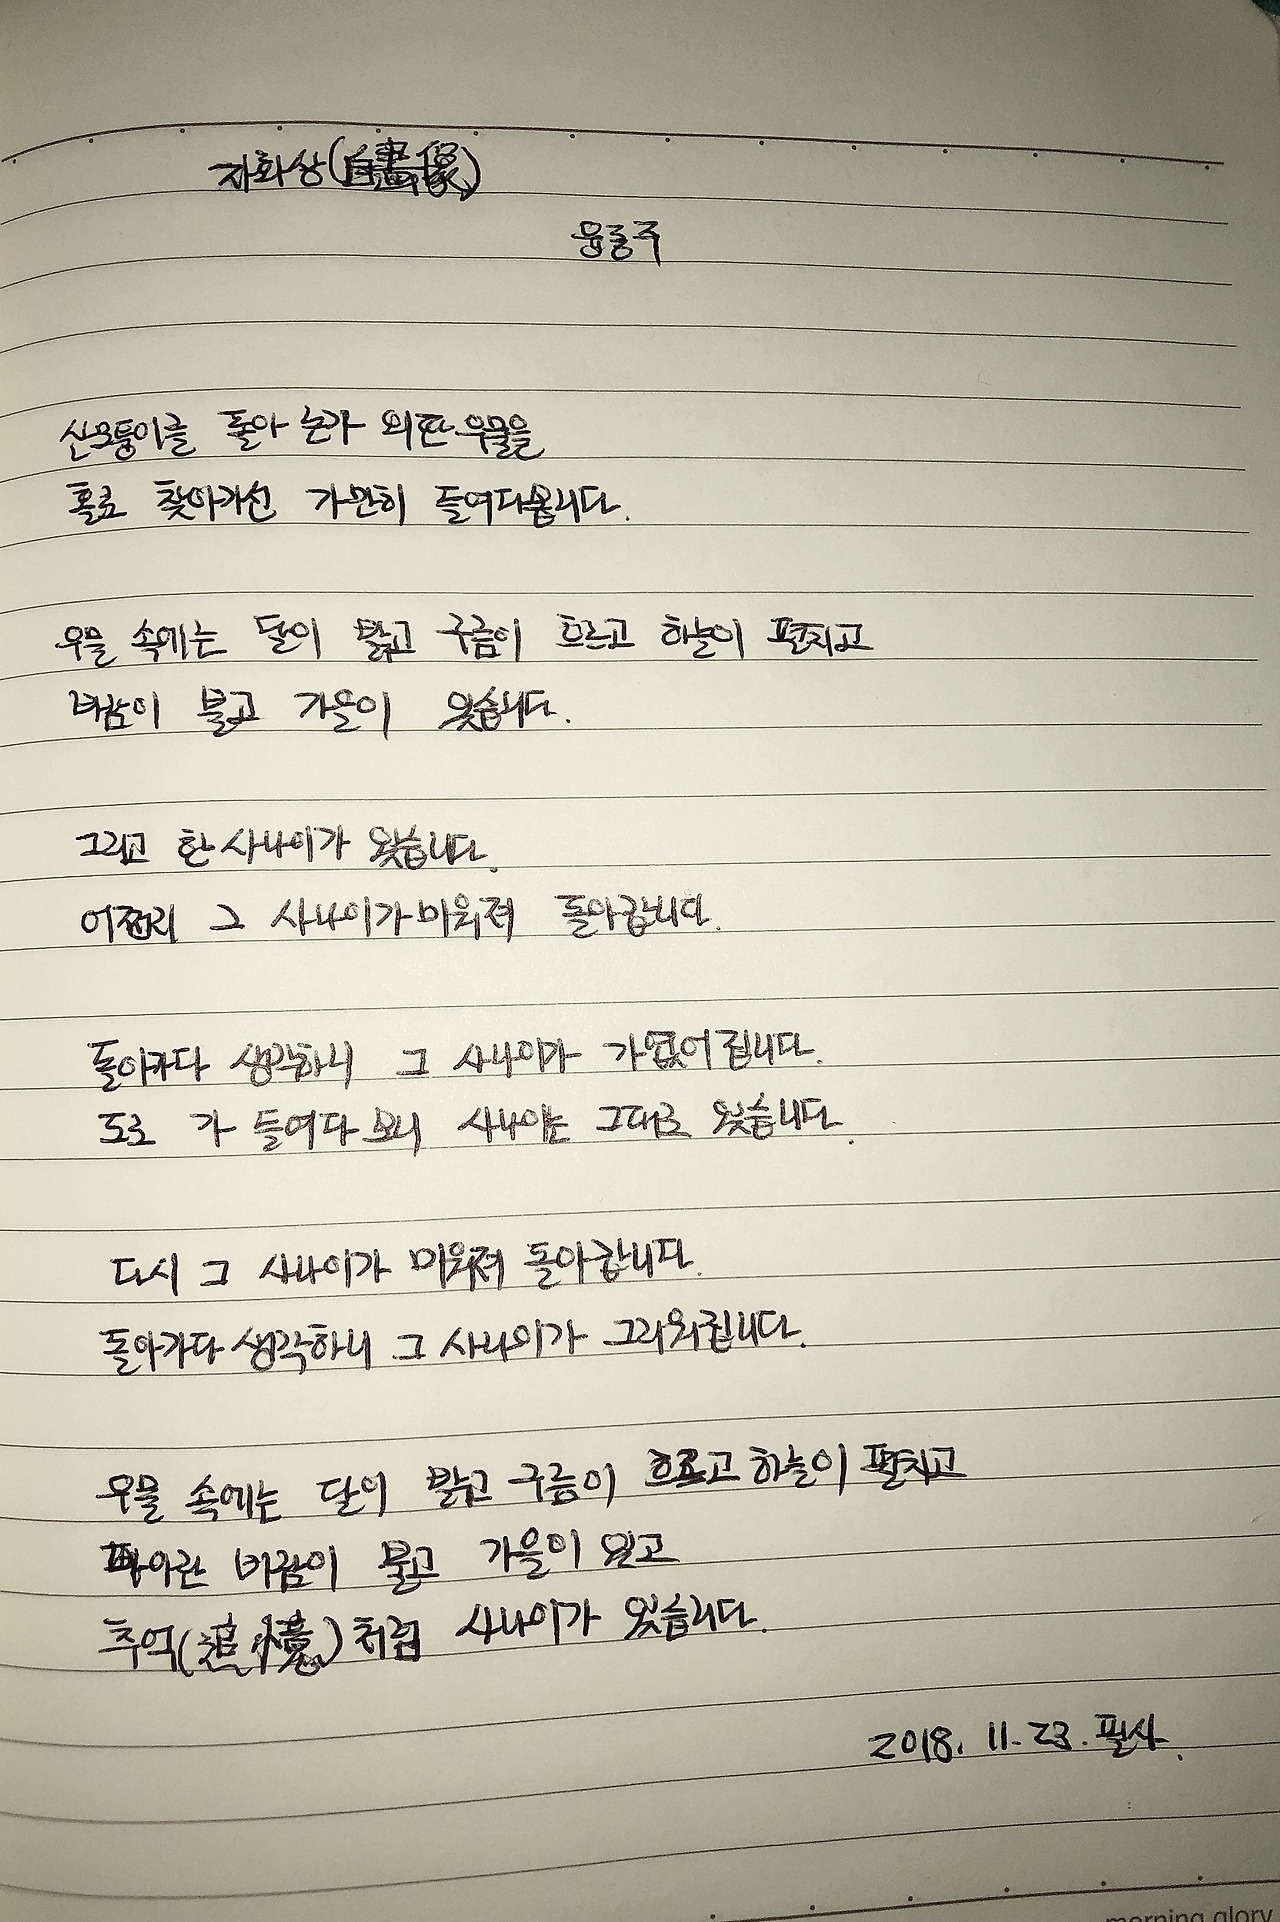 자화상(自畫像)
윤동주
산모퉁이를 돌아 논가 외딴 우물을
홀로 찾아가선 가만히 들여다봅니다.
우물 속에는 달이 밝고 구름이 흐르고 하늘이 펼치고
바람이 불고 가을이 있습니다.
그리고 한 사나이가 있습니다.
어쩐지 그 사나이가 미워져 돌아갑니다.
돌아가다 생각하니 그 사나이가 가엾어집니다.
도로 가 들여다 보니 사나이는 그대로 있습니다.
다시 그 사나이가 미워져 돌아갑니다.
돌아가다 생각하니 그 사나이가 그리워집니다.
우물 속에는 달이 밝고 구름이 흐르고 하늘이 펼치고
파아란 바람이 불고 가을이 있고
추억(追憶)처럼 사나이가 있습니다.
2018. 11. 23. 필사.
morning glory